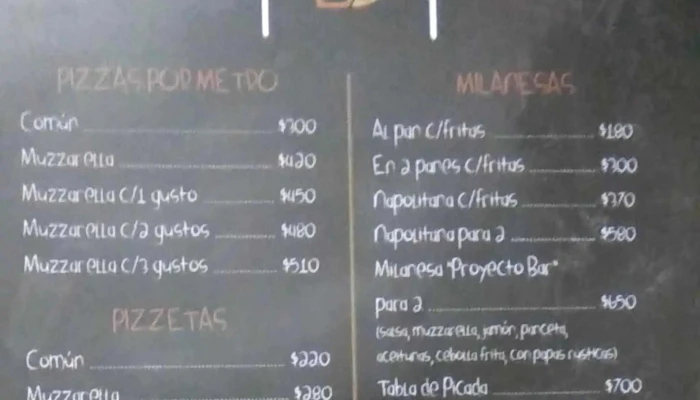 PIZZAS POR METRO
Común $300
Muzzarella $420
Muzzarella c/1 gusto $450
Muzzarella c/2 gustos $480
Muzzarella c/3 gustos $510
PIZZETAS
Común $220
Muzzarella $280
MILANESAS
Al pan c/fritas $180
En 2 panes c/fritas $300
Napolitana c/fritas $370
Napolitana para 2 $580
Milanesa "Proyecto Bar"
para 2 $650
(salsa, muzzarella, jamón, panceta,
aceitunas, cebolla frita, con papas rusticas)
Tabla de Picada $700